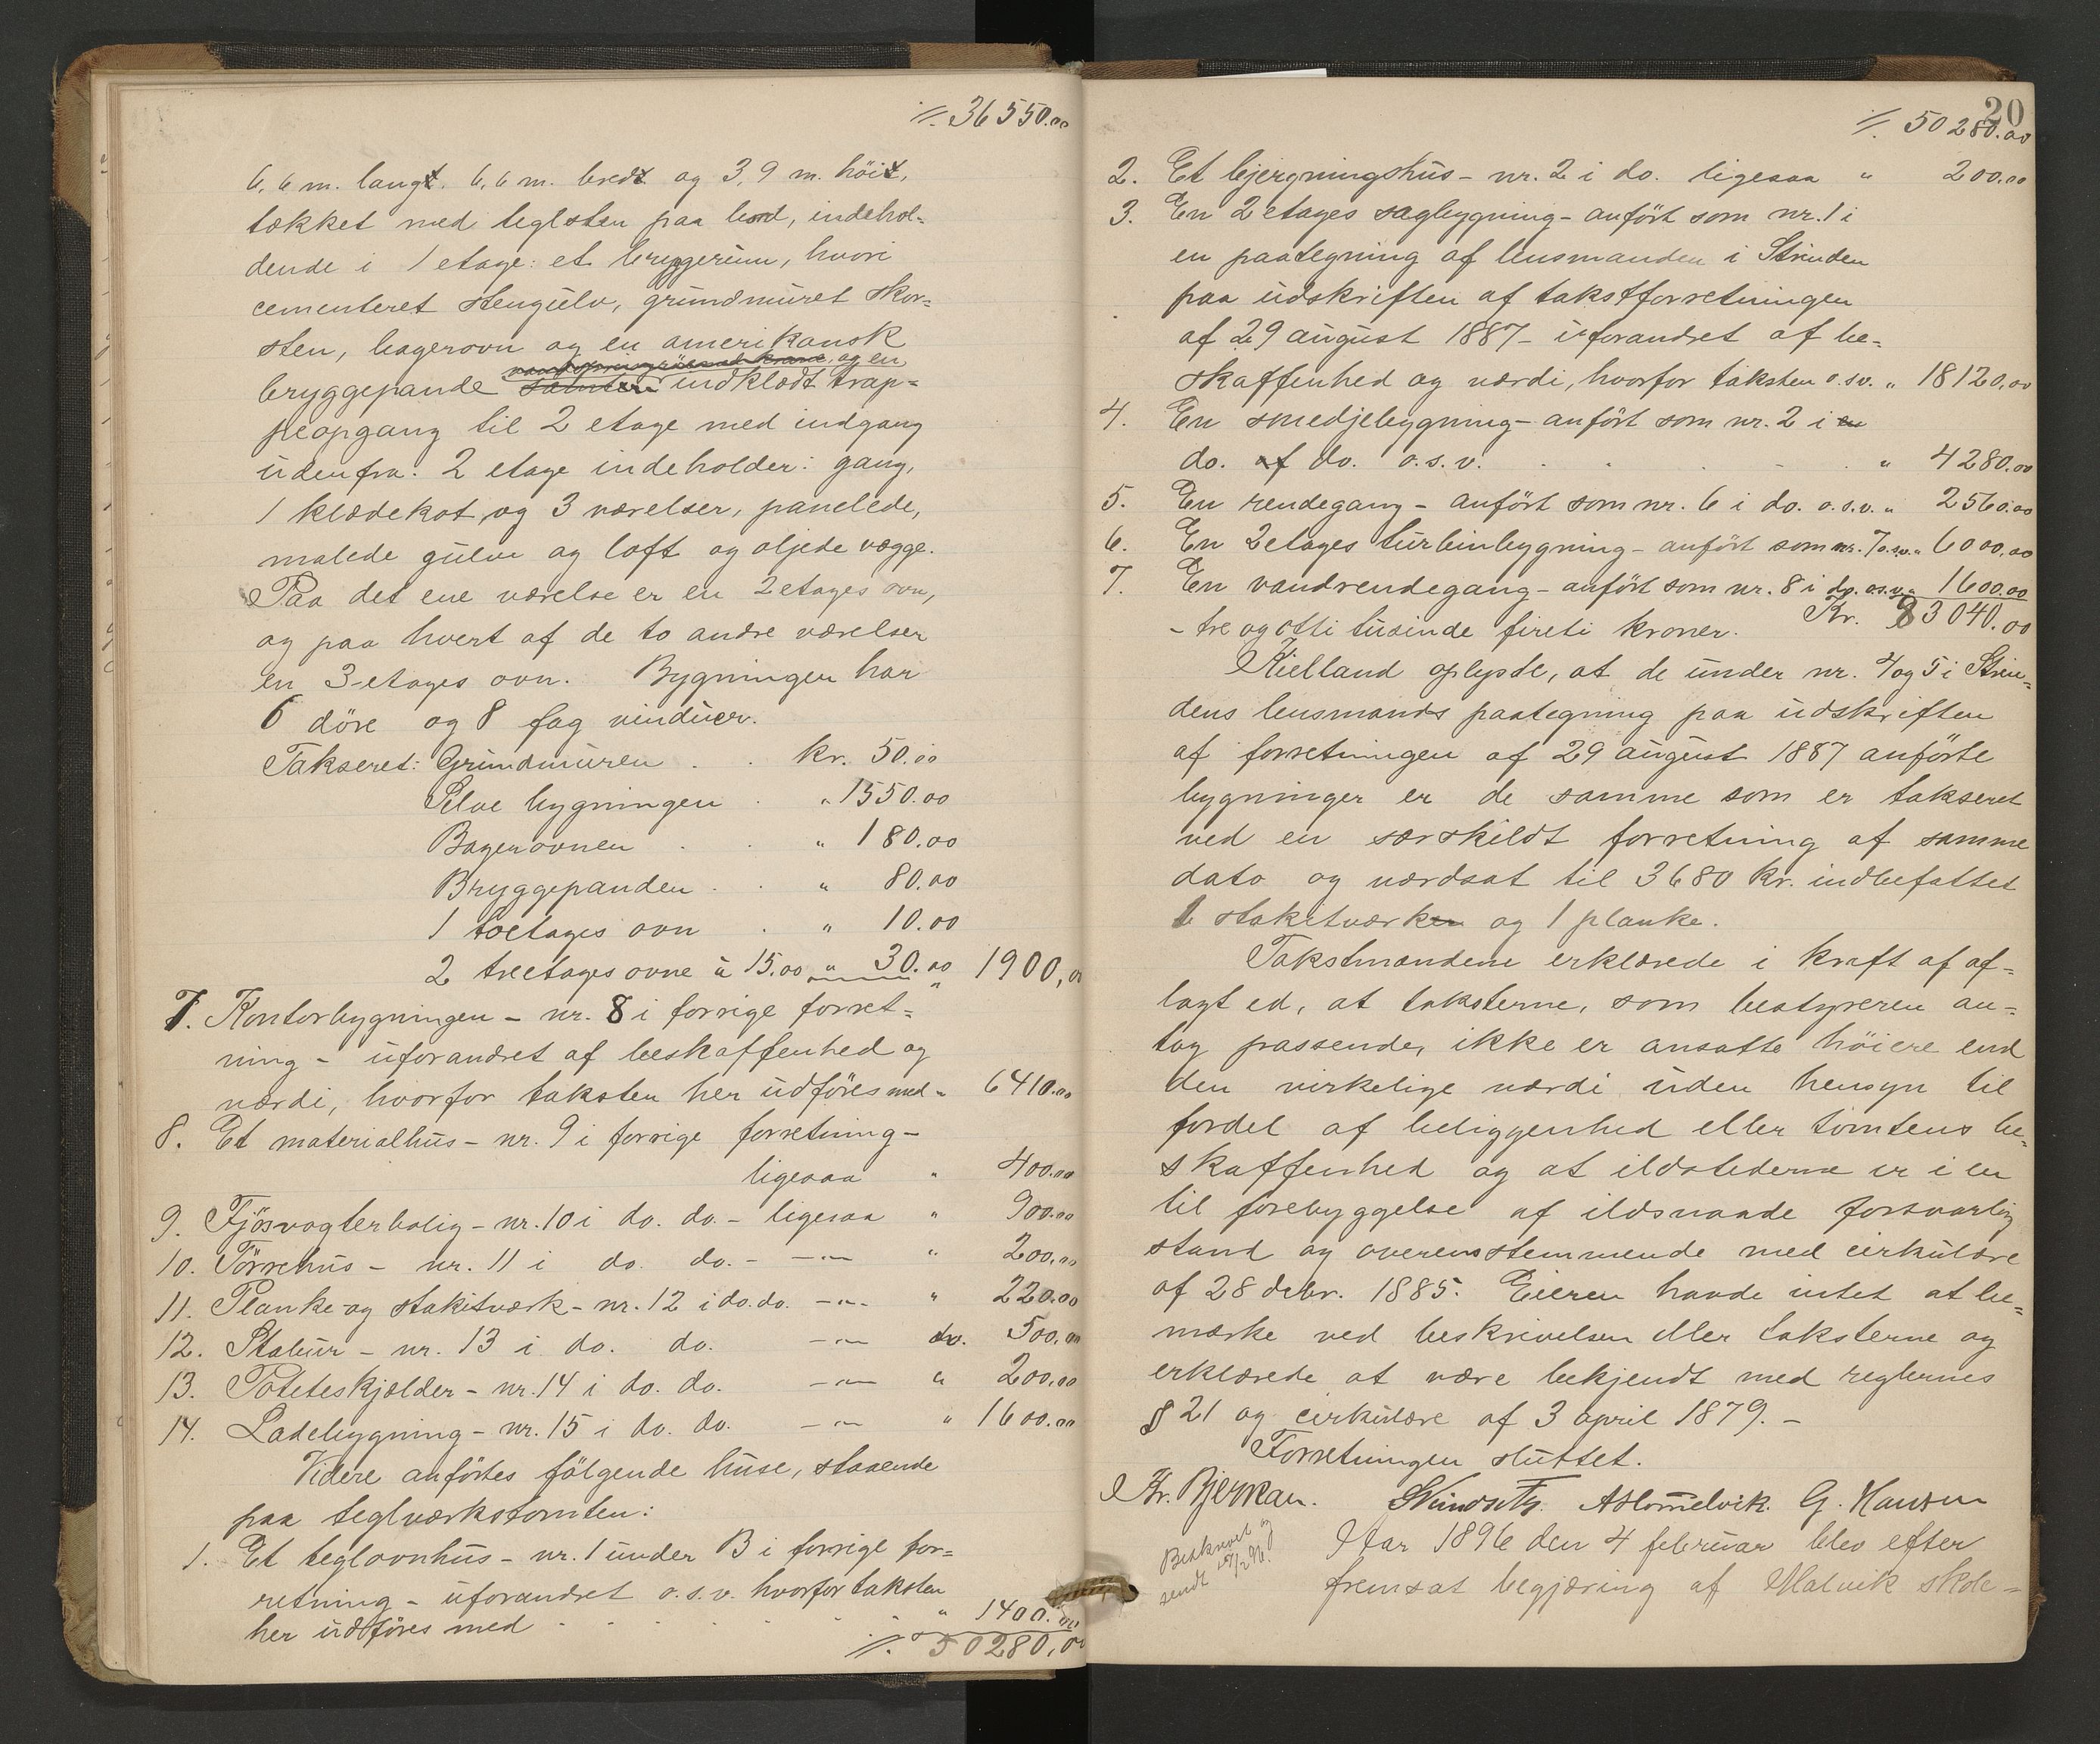 ⁒ 36550.00
6,6 m. langt. 6,6 m. bredt og 3,9 m. höit,
tækket med teglsten paa bord, indehol-
dende i 1 etage: et bryggerum, hvori
cementeret stengulv, grundmuret skor-
sten, bagerovn og en amerikansk
og en
bryggepande indklædt trap-
peopgang til 2 etage med indgang
udenfra. 2 etage indeholder: gang,
1 klædekot og 3 værelser, panelede,
malede gulve og loft og oljede vægge.
Paa det ene værelse er en 2 etages ovn,
og paa hvert af de to andre værelser
en 3-etages ovn. Bygningen har
6 döre og 8 fag vinduer.
Takseret: Grundmuren . . kr. 50.00
Selve bygningen . " 1550.00
Bagerovnen . . " 180.00
Bryggepanden . . " 80.00
1 toetages ovn . " 10.00
2 treetages ovne à 15.00 " 30.00 " 1900,00
7. Kontorbygningen - nr. 8 i forrige forret-
ning - uforandret af beskaffenhed og
værdi, hvorfor taksten her udföres med " 6410.00
8. Et materialhus - nr. 9 i forrige forretning -
ligesaa " 400.00
9. Fjösvogterbolig - nr. 10 i do. do. - ligesaa " 900.00
10. Törrehus - nr. 11 i do. do. - —"— " 200.00
11. Planke- og stakitværk - nr. 12 i do. do. —"— " 220.00
12. Stabur - nr. 13 i do. do. —"— do. 500.00
13. Poteteskjælder - nr. 14 i do. do. —"— " 200.00
14. Ladebygning - nr. 15 i do. do. —"— " 1600.00
Videre anförtes fölgende huse, staaende
paa teglværkstomten:
1. Et teglovnhus - nr. 1 under B i forrige for-
retning - uforandret o.s.v. hvorfor taksten
her udföres med . . . . . " 1400.00
⁒ 50280,00
20
⁒ 50280.00
2. Et bjergningshus - nr. 2 i do. ligesaa " 200.00
3. En 2 etages sagbygning - anfört som nr. 1 i
en paategning af lensmanden i Strinden
paa udskriften af takstforretningen
af 29 august 1887 - uforandret af be-
skaffenhed og værdi, hvorfor taksten o.sv. " 18120,00
4. En smedjebygning - anfört som nr. 2 i en
do. af do. o.s.v. . . . . " 4280.00
5. En rendegang - anfört som nr. 6 i do. o.s.v. " 2560.00
6. En 2etages turbinbygning - anfört som nr. 7 o.s.v. " 6000,00
7. En vandrendegang - anfört som nr. 8 i do. o.s.v. " 1600.00
Kr. 83040.00
- tre og otti tusinde fireti kroner.
Kielland oplyste, at de under nr. 4 og 5 i Strin-
dens lensmands paategning paa udskriften
af forretningen af 29 august 1887 anförte
bygninger er de samme som er takseret
ved en særskildt forretning af samme
dato og værdsat til 3680 kr. indbefattet
1 stakitværk og 1 planke.
Takstmændene erklærede i kraft af af-
lagt ed, at taksterne, som bestyreren an-
tog passende, ikke er ansatte höiere end
den virkelige værdi uden hensyn til
fordel af beliggenhed eller tomtens be-
skaffenhed og at ildstederne er i en
til forebyggelse af ildsvaade forsvarlig
stand og overensstemmende med cirkulære
af 28 debr. 1885. Eieren havde intet at be-
mærke ved beskrivelsen eller taksterne og
erklærede at være bekjendt med reglernes
§ 21 og cirkulære af 3 april 1879. -
Forretningen sluttet.
Kr. Bjerkan. G. Hansen
Beskrevet og
sendt
Aar 1896 den 4 februar blev efter
fremsat begjæring af Malvik skole-